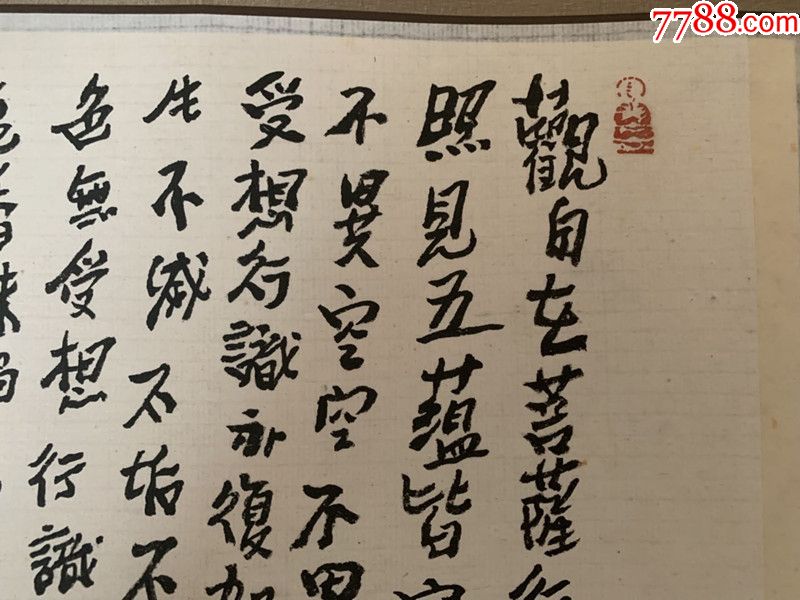 7788.com
觀自在菩薩行
照見五蘊皆空
不異空空不異
受想行識亦復如
生不滅不垢不
色無受想行識